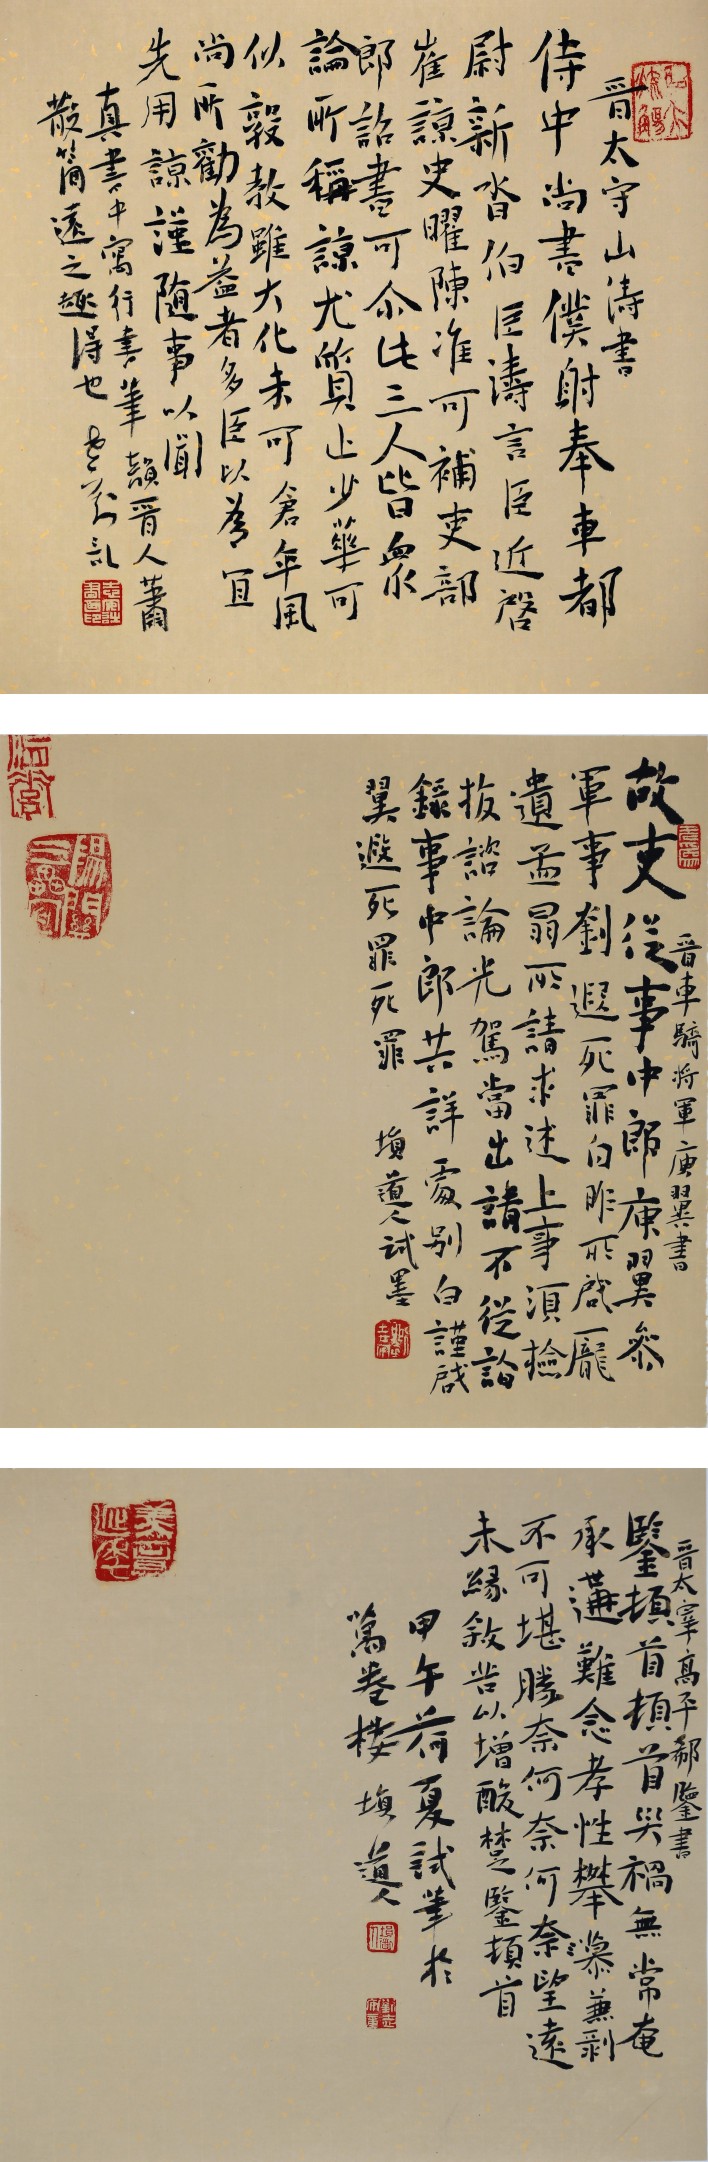 晋太守山涛書
侍中尚書僕射奉車都
尉新沓伯臣濤言臣近啓
崔諒史曜陳准可補吏部
郎詔書可尒此三人皆衆
論所稱諒尤質止少華可
以敦教雖大化未可倉卒風
尚所勸為益者多臣以為宜
先用諒謹随事以聞
真書中寓行書筆韻晋人蕭
散簡遠之趣得也
晋車騎将軍庾翼書
故吏従事中郎庾翼参
軍事劉遐死罪白昨所啓龐
遺孟昌所請求述上事須檢
校諮論光駕當出請不従論
録事中郎共詳處別白謹啓
翼遐死罪死罪
塤道人試墨
晋太宰高平郗鑒書
鑒頓首頓首災禍無常奄
承遘難念孝性攀慕兼剥
不可堪勝奈何奈何奈望遠
未緣敘苦以增酸楚鑒頓首
甲午荷夏試筆於
萬卷樓塤道人